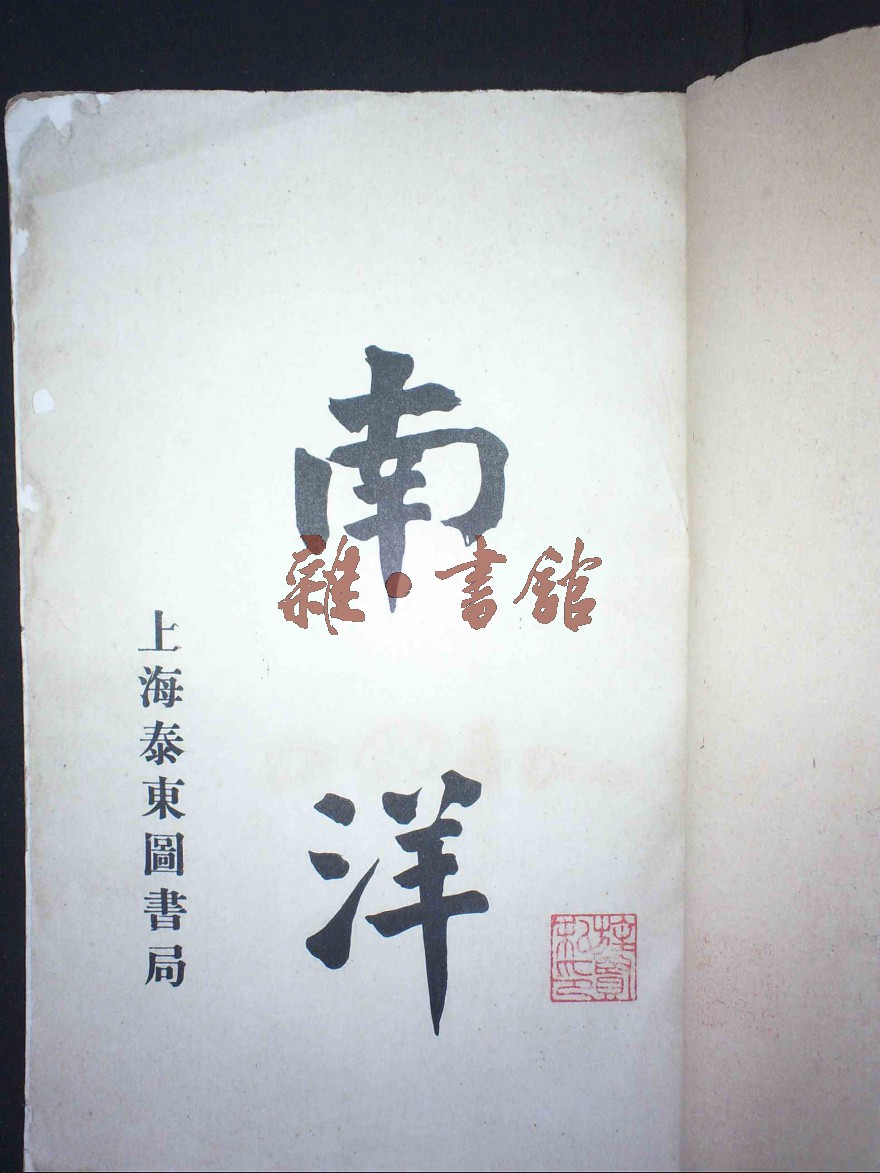 南洋
上海泰東圖書局
雜·書館